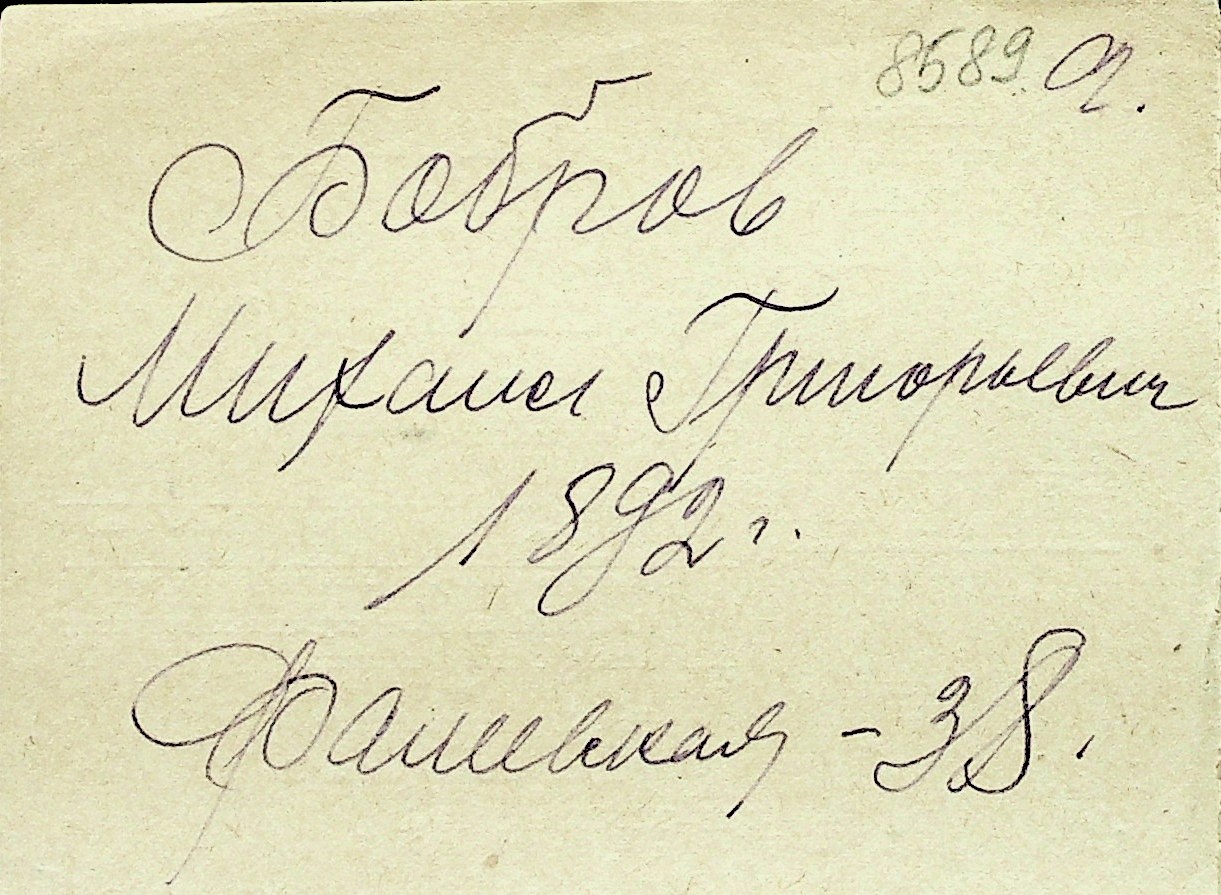 8589 а.
Бобров
Михаил Григорьевич
1892 г.
- 38.